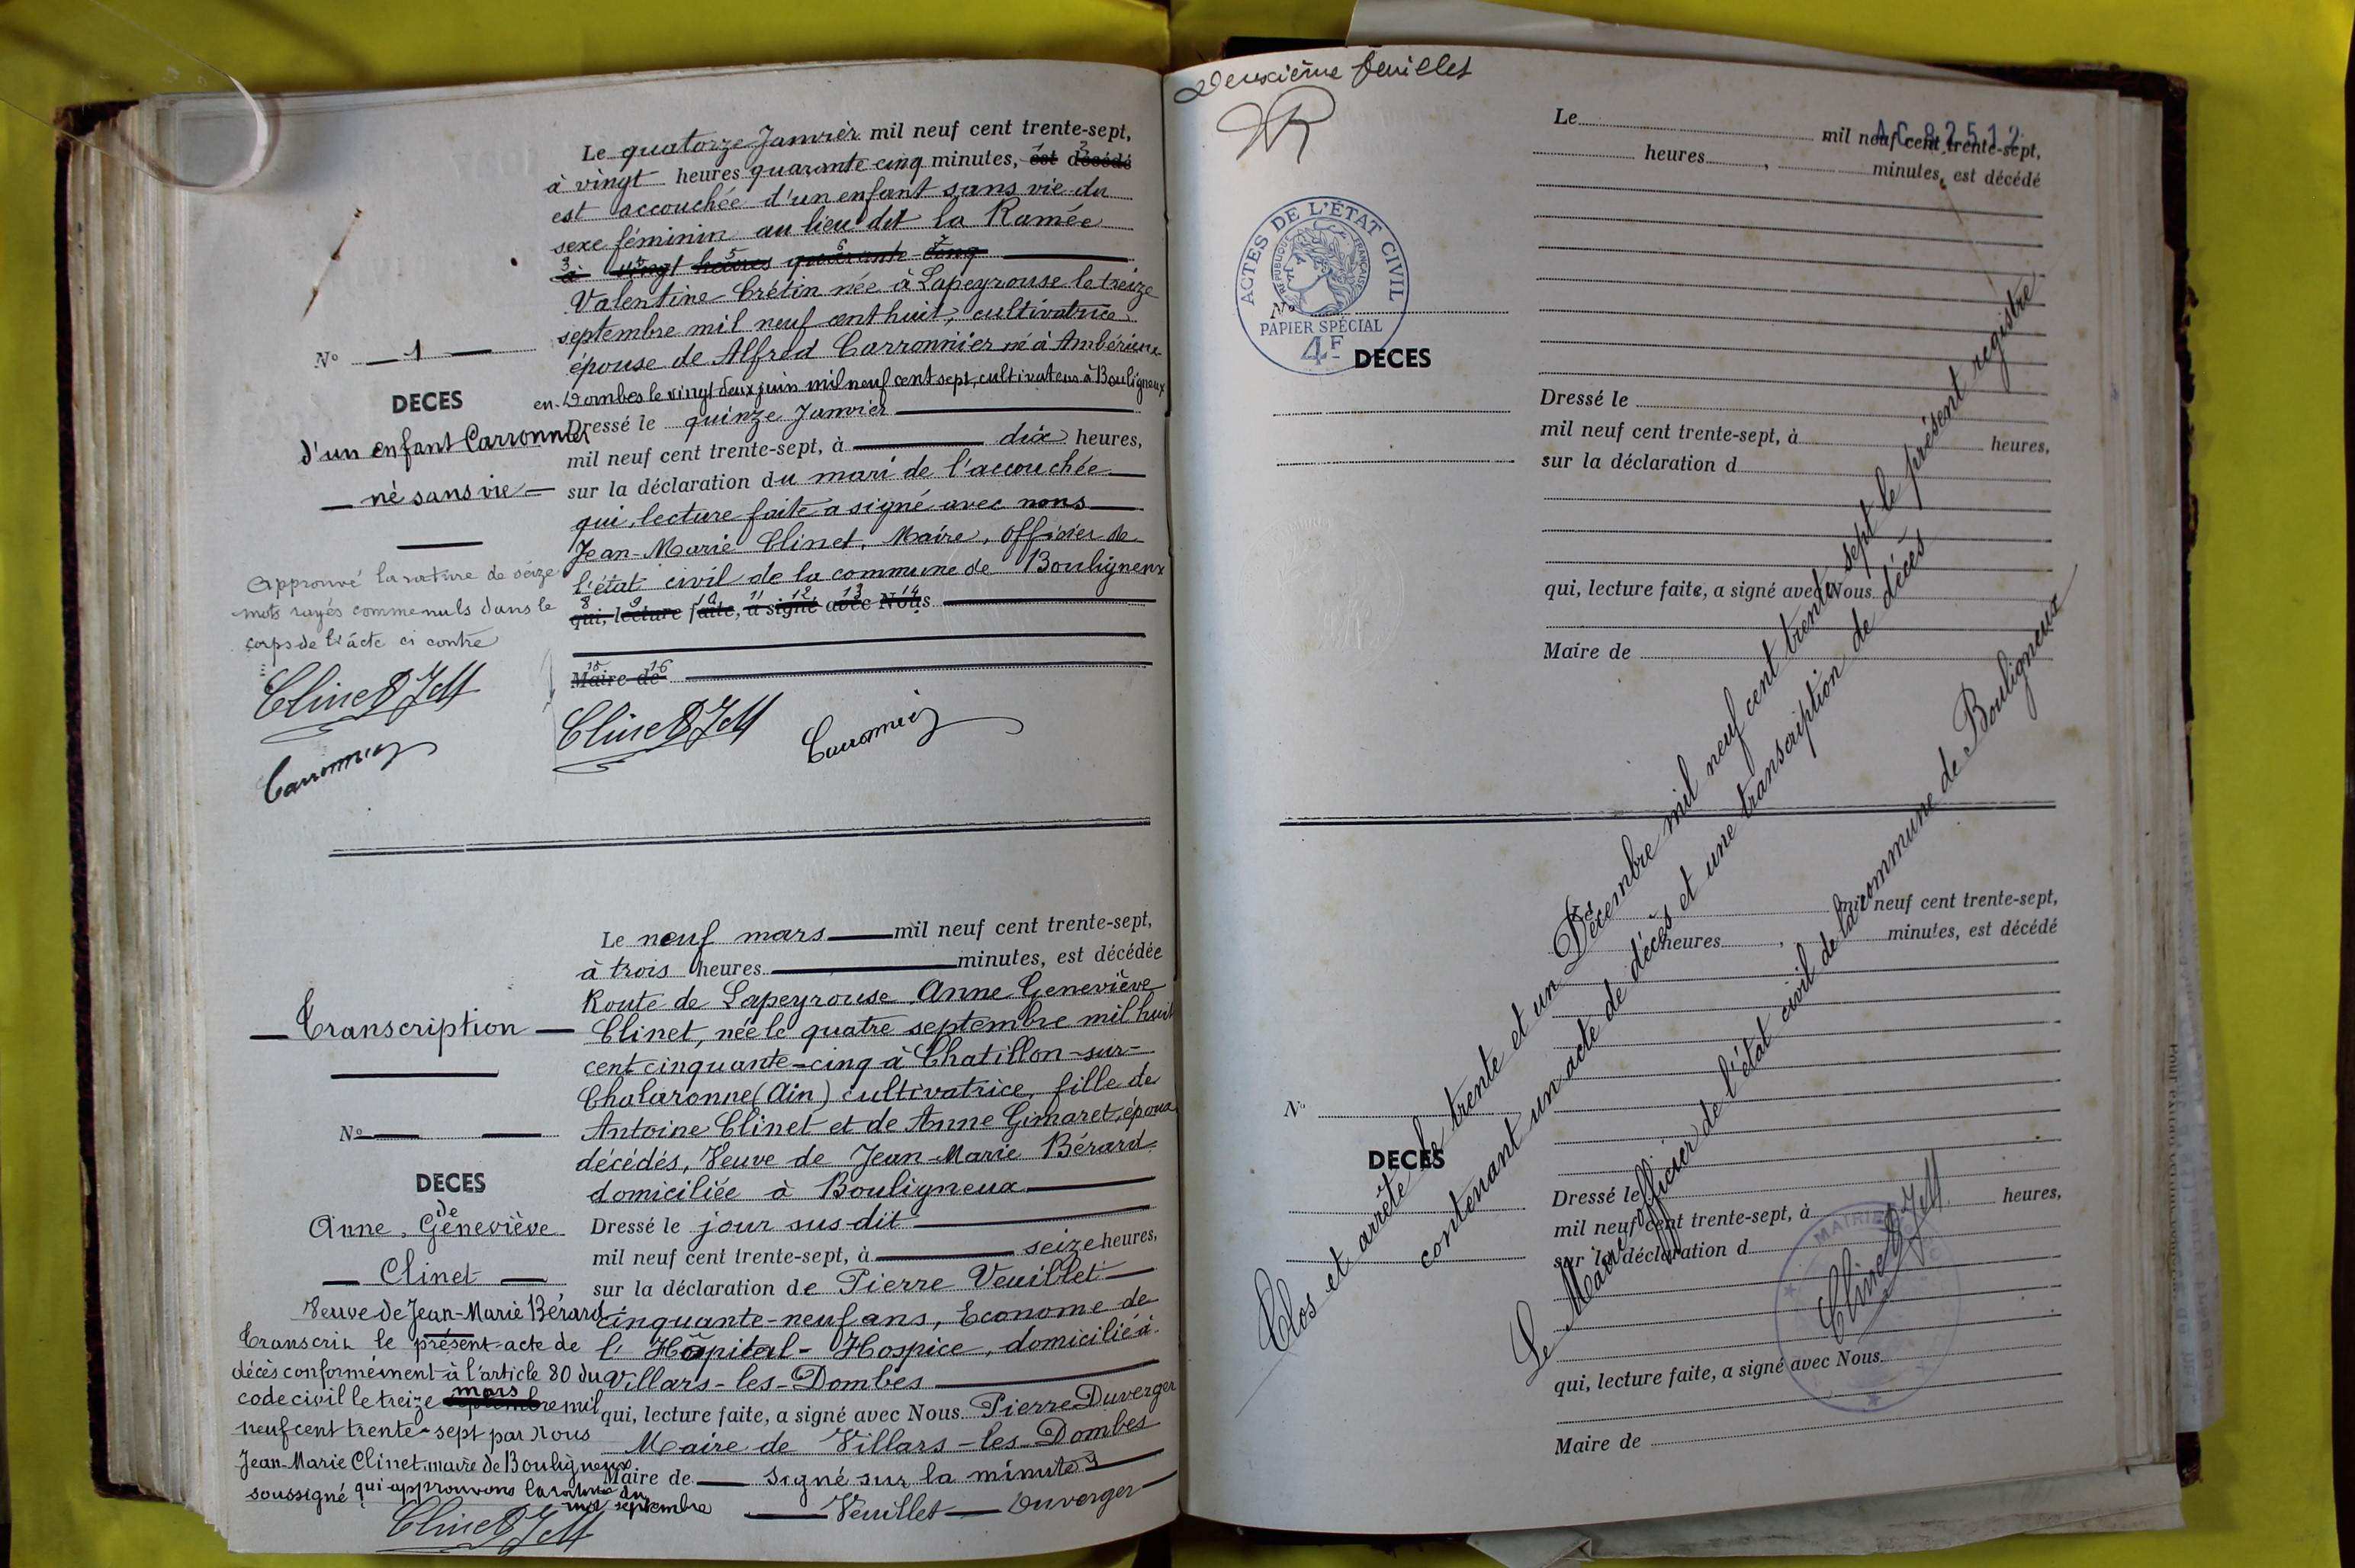 Le quatorze Janvier mil neuf cent trente-sept,
à vingt heures quarante cinq minutes, est décédé
est accouchée d'un enfant sans vie du
sexe féminin au lieu dit la Ramée
à vingt heures quarante-cinq
Valentine Crétin née à Lapeyrouse le treize
septembre mil neuf cent huit, cultivatrice
épouse de Alfred Carronnier né à Ambérieux
en-Dombes le vingt deux juin mil neuf cent sept, cultivateur à Bouligneux
Dressé le quinze Janvier
mil neuf cent trente-sept, à dix heures,
sur la déclaration du mari de l'accouchée
qui, lecture faite a signé avec nous
Jean-Marie Clinet, Maire, officier de
l'état civil de la commune de Bouligneux
qui, lecture faite, a signé avec Nous
Maire de
Clinet JM Carronnier
No 1
DECES
d'un enfant Carronnier
né sans vie
Approuvé la rature de seize
mots rayés comme nuls dans le
corps de l'acte ci contre
Clinet JM
Carronnier
Le neuf mars mil neuf cent trente-sept,
à trois heures minutes, est décédée
Route de Lapeyrouse Anne Geneviève
Clinet, née le quatre septembre mil huit
cent cinquante-cinq à Chatillon-sur-
Chalaronne (Ain) cultivatrice, fille de
Antoine Clinet et de Anne Gimaret, époux
décédés, Veuve de Jean-Marie Bérard
domiciliée à Bouligneux
Dressé le jour sus-dit
mil neuf cent trente-sept, à seize heures,
sur la déclaration de Pierre Veuillet
cinquante-neuf ans, Econome de
l'Hôpital-Hospice, domicilié à
Villars-les-Dombes
qui, lecture faite, a signé avec Nous Pierre Duverger
Maire de Villars-les-Dombes
Maire de Signé sur la minute
Veuillet Duverger
Transcription
No
DECES
de
Anne, Geneviève
Clinet
Veuve de Jean-Marie Bérard
Transcrit le présent acte de
décès conformément à l'article 80 du
code civil le treize mars septembre mil
neuf cent trente-sept par Nous
Jean-Marie Clinet, maire de Bouligneux
soussigné qui approuvons la rature du
mot septembre
Clinet JM
Deuxième feuillet
AC 82512
Le mil neuf cent trente-sept,
heures, minutes, est décédé
ACTES DE L'ÉTAT CIVIL
RÉPUBLIQUE FRANÇAISE
PAPIER SPÉCIAL
4F
No
DECES
Dressé le
mil neuf cent trente-sept, à heures,
sur la déclaration d
qui, lecture faite, a signé avec Nous
Maire de
Clos et arrêté le trente et un Décembre mil neuf cent trente sept le présent registre
contenant un acte de décès et une transcription de décès
Le Maire officier de l'état civil de la commune de Bouligneux
Clinet JM
MAIRIE
Le mil neuf cent trente-sept,
heures, minutes, est décédé
No
DECES
Dressé le
mil neuf cent trente-sept, à heures,
sur la déclaration d
qui, lecture faite, a signé avec Nous
Maire de